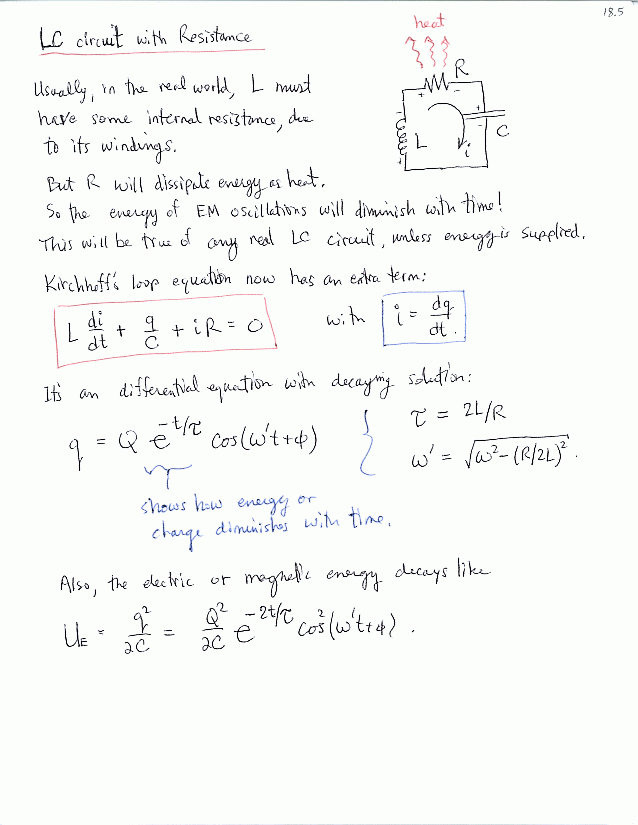 18.5
LC circuit with Resistance
heat
R
+ -
L
+
-
C
i
Usually, in the real world, L must
have some internal resistance, due
to its windings.
But R will dissipate energy as heat.
So the energy of EM oscillations will diminish with time!
This will be true of any real LC circuit, unless energy is supplied.
Kirchhoff's loop equation now has an extra term:
L di/dt + q/C + iR = 0 with i = dq/dt.
It's an differential equation with decaying solution:
q = Q e^{-t/τ} cos(ω't+φ) } τ = 2L/R
ω' = √(ω²-(R/2L)²).
shows how energy or
charge diminishes with time.
Also, the electric or magnetic energy decays like
U_E = q²/2C = Q²/2C e^{-2t/τ} cos²(ω't+φ).